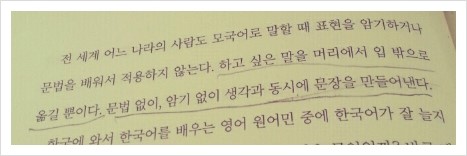 전 세계 어느 나라의 사람도 모국어로 말할 때 표현을 암기하거나
문법을 배워서 적용하지 않는다. 하고 싶은 말을 머리에서 입 밖으로
옮길 뿐이다. 문법 없이, 암기 없이 생각과 동시에 문장을 만들어낸다.
한국에 와서 한국어를 배우는 영어 원어민 중에 한국어가 잘 늘지